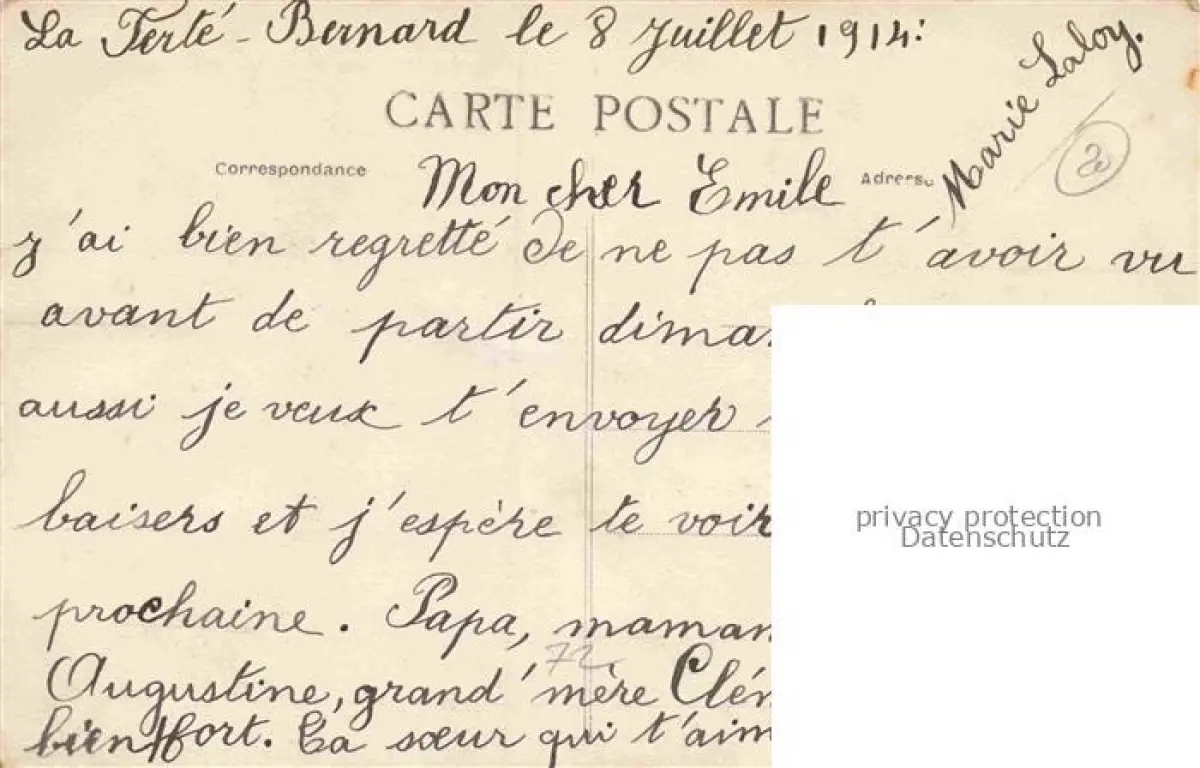 La Ferté-Bernard le 8 Juillet 1914:
Marie Laloy.
CARTE POSTALE
Correspondance
Adresse
2
Mon cher Emile
j'ai bien regretté de ne pas t'avoir vu
avant de partir
aussi je veux t'envoyer
baisers et j'espère te voir
prochaine. Papa, maman
72
Augustine, grand'mère
bien fort. Ta sœur qui
privacy protection
Datenschutz